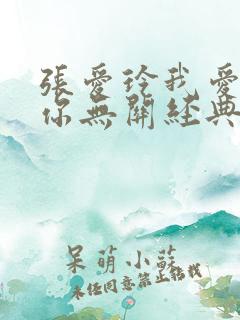 張愛玲我愛
你無關經典
呆萌小蘇
未經同意禁止轉載